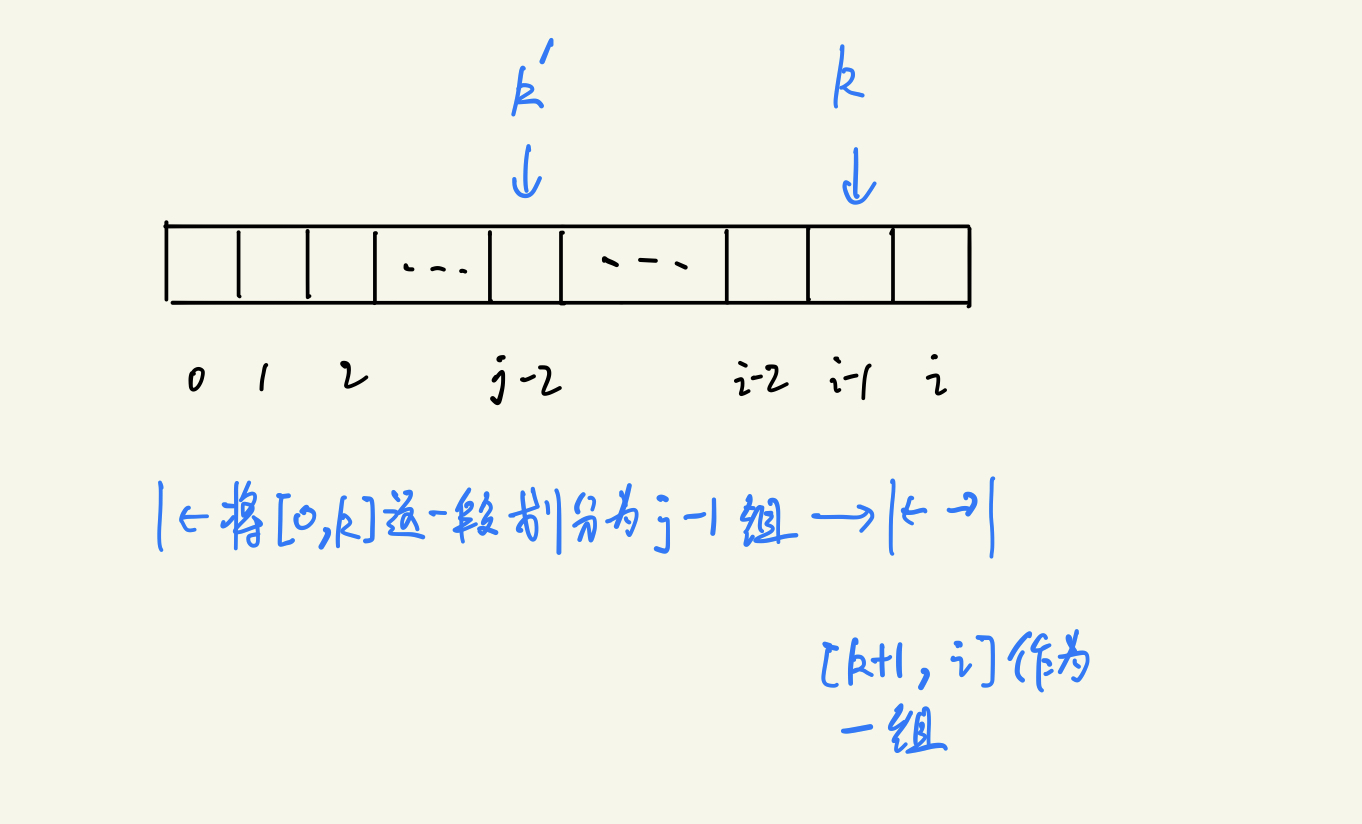 k' k
--- ---
0 1 2 j-2 i-2 i-1 i
|←将[0,k]这一段划分为j-1组→|←→|
[k+1,i]作为
一组